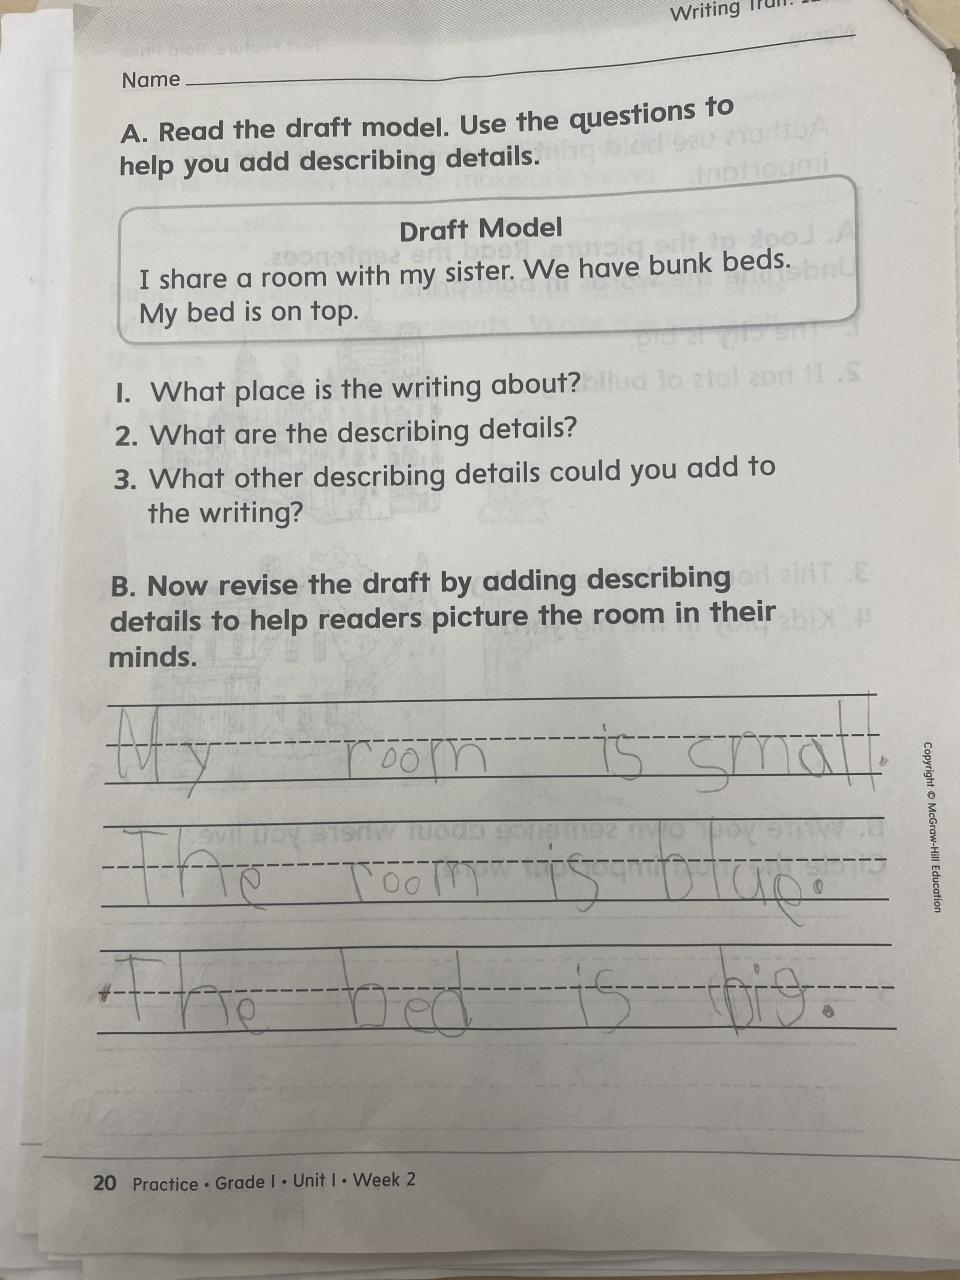 Writing
Name
A. Read the draft model. Use the questions to
help you add describing details.
Draft Model
I share a room with my sister. We have bunk beds.
My bed is on top.
1. What place is the writing about?
2. What are the describing details?
3. What other describing details could you add to
the writing?
B. Now revise the draft by adding describing
details to help readers picture the room in their
minds.
My room is small.
The room is blue.
The bed is big.
Copyright © McGraw-Hill Education
20 Practice • Grade 1 • Unit 1 • Week 2